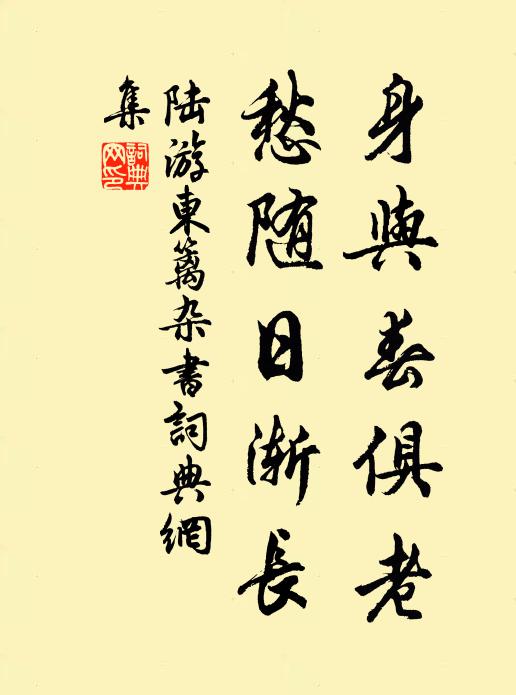 身與春俱老
愁随日漸長
陆游東籬杂書詞典網
集
詞典網印